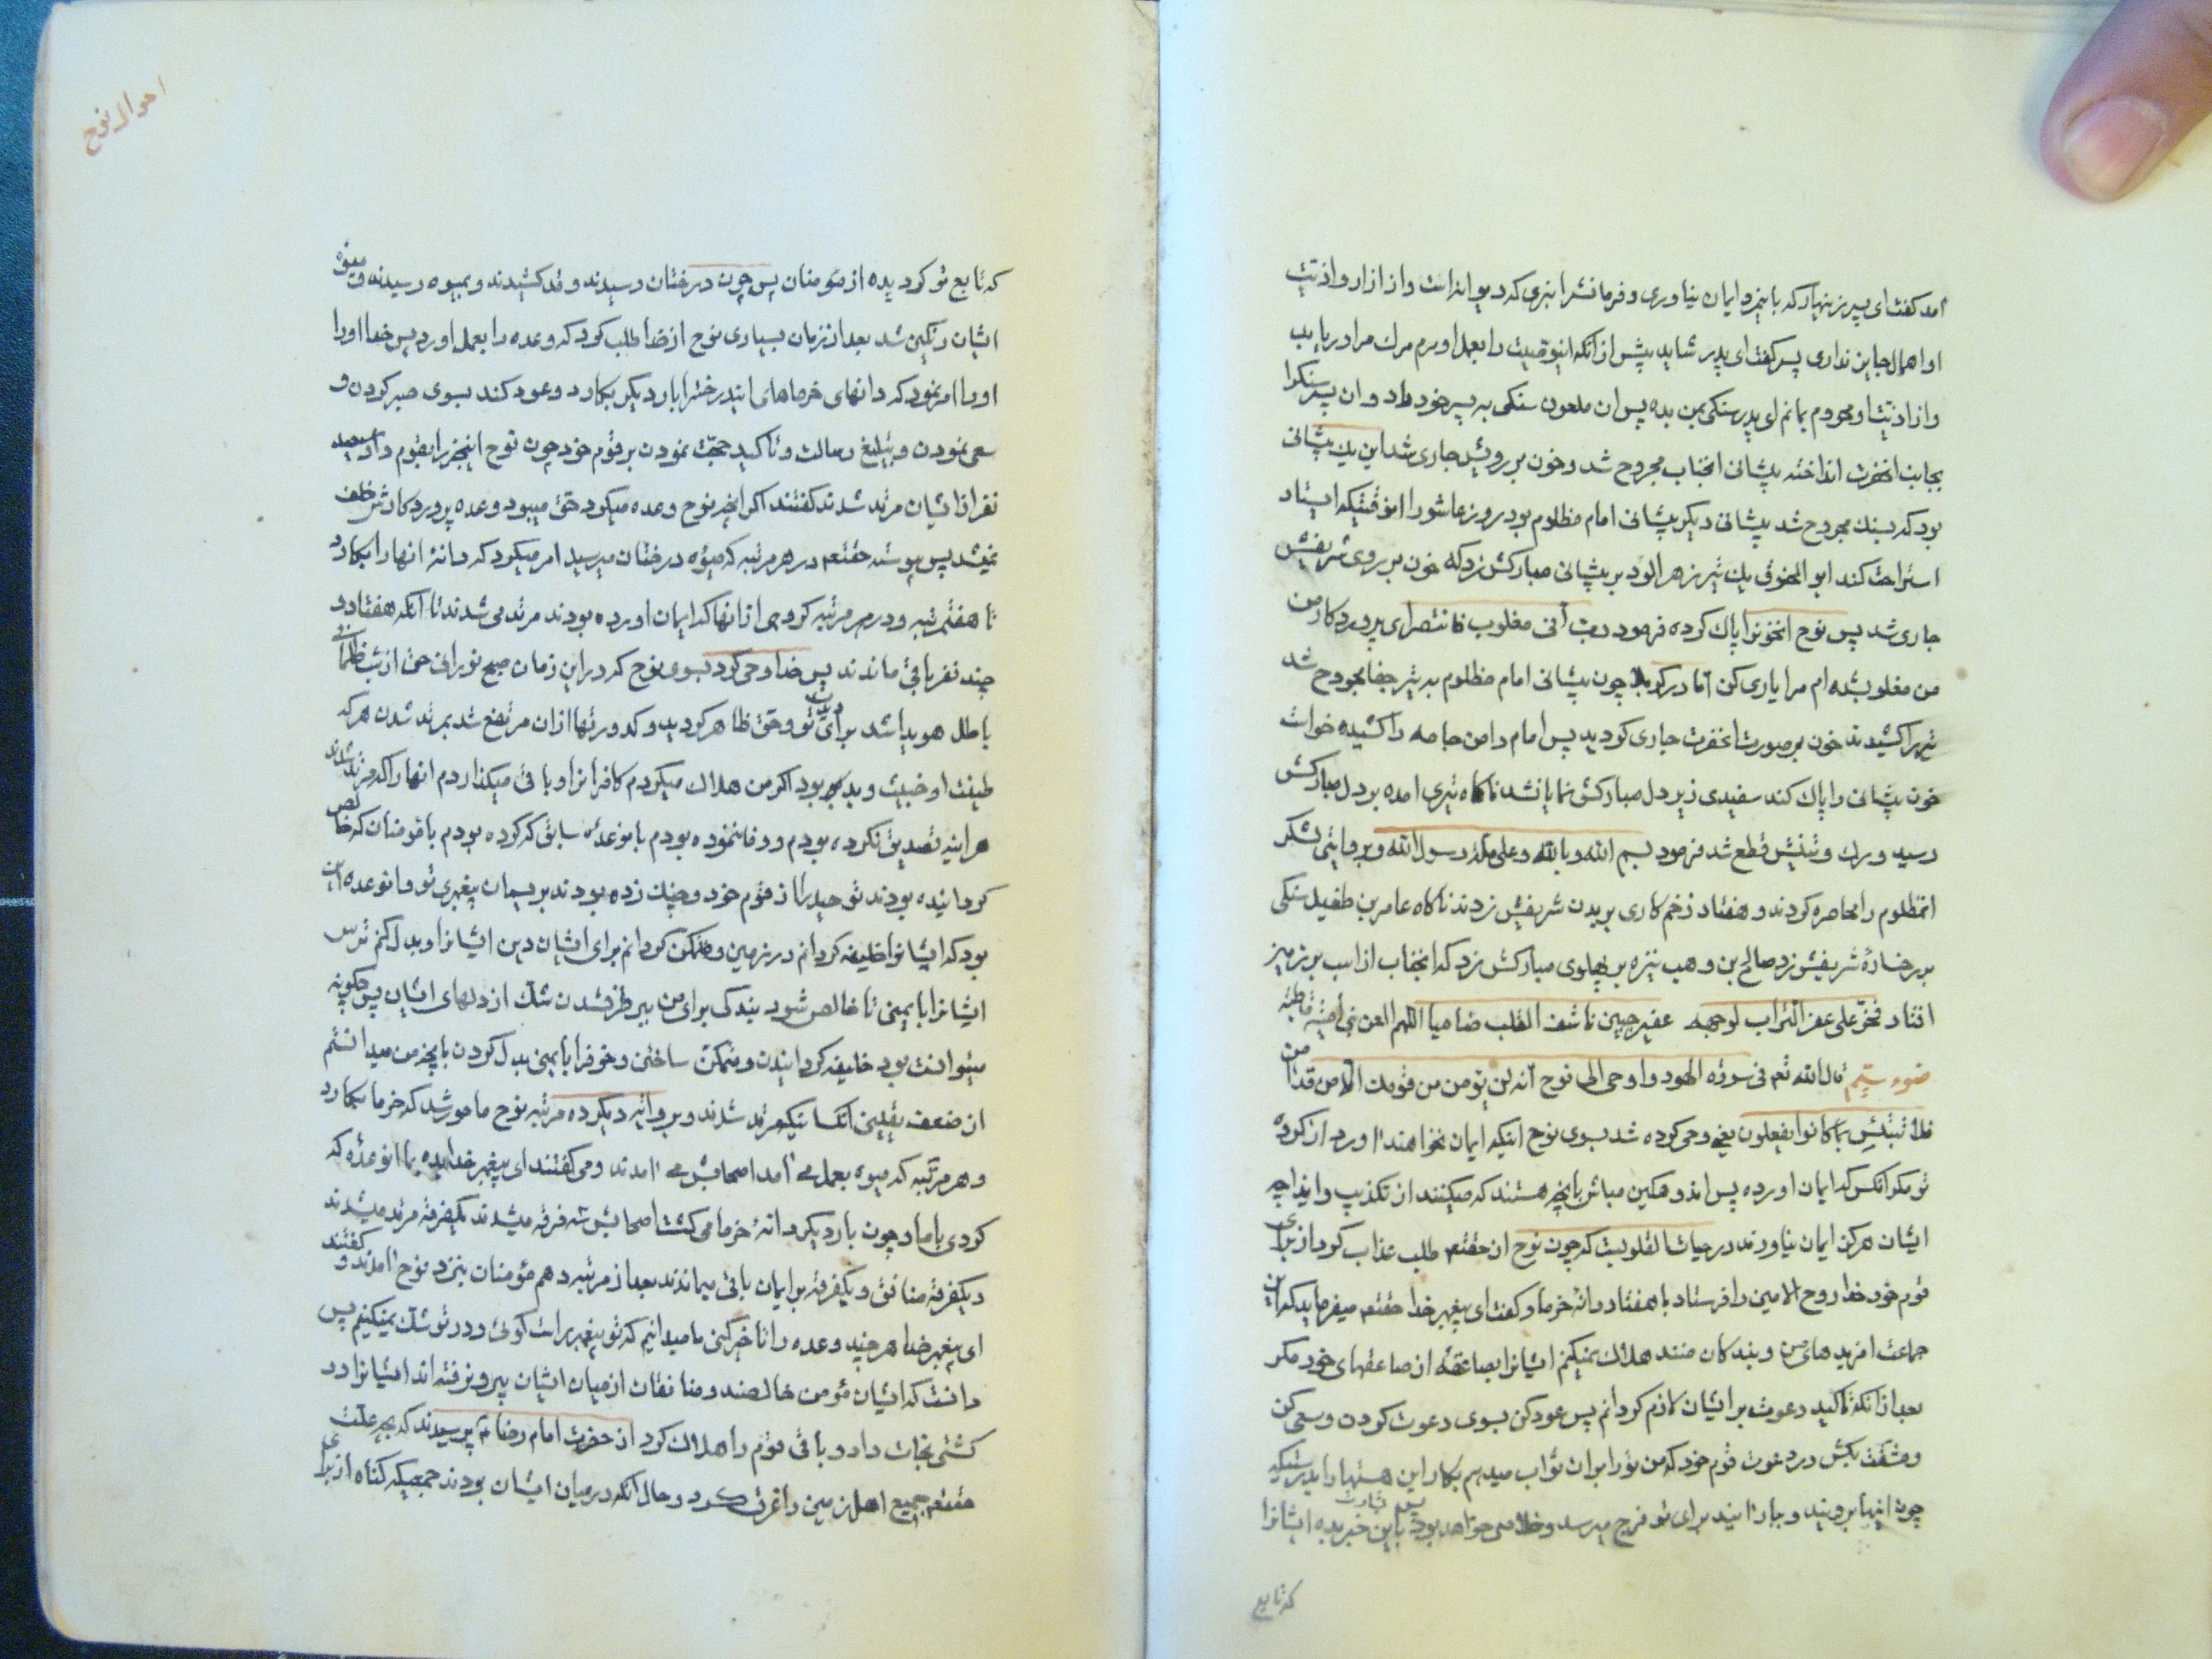 امد کفت ای پسر زینهار که باینمرد ایمان نیاوری و فرمانشرا نبری که دیوانه است و از ازار و اذیتت
او اهمال جایز نداری پسر کفت ای پدر شاید پیش از انکه اینوصیت را بعمل اورم مرک مرا دریابد
و از اذیت او محروم بمانم ای پدر سنکی بمن بده پس ان ملعون سنکی به پسر خود داد و ان پسر سنکرا
بجانب انحضرت انداخته پیشانی انجناب مجروح شد و خون بر رویش جاری شد این یك پیشانی
بود که بسنك مجروح شد پیشانی دیکر پیشانی امام مظلوم بود روز عاشورا انوقتیکه ایستاد
استراحت کند ابو الحنوق یك تیر زهر الود بر پیشانی مبارکش زد که خون بر روی شریفش
جاری شد پس نوح انخونرا پاك کرده فرمود رب انی مغلوب فانتصر ای پروردکار من
من مغلوب شده ام مرا یاری کن اما در کربلا چون پیشانی امام مظلوم به تیر جفا مجروح شد
تیر را کشیدند خون بر صورت انحضرت جاری کردید پس امام دامن جامه را کشیده خواست
خون پیشانی را پاك کند سفیدی زیر دل مبارکش نمایان شد ناکاه تیری امده بر دل مبارکش
رسید و رك و تنش قطع شد فرمود بسم الله و بالله و علی ملة رسول الله و بروایتی لشکر
انمظلوم را محاصره کردند و هفتاد زخم کاری بر بدن شریفش زدند ناکاه عامر بن طفیل سنکی
بر رخساره شریفش زد صالح بن وهب نیزه بر پهلوی مبارکش زد که انجناب از اسب بر زمین
افتاد فخر علی عفر التراب لوجهه عفیر جبین ناشف القلب ضامیا اللهم العن بنی امیة قاطبة
ضوء سیم قال الله تعم فی سورة الهود و اوحی الی نوح انه لن یومن من قومك الا من قد امن
فلا تبتئس بما کانوا یفعلون یعنی وحی کرده شد بسوی نوح اینکه ایمان نخواهند اورد از کروه
تو مکر انکس که ایمان اورده پس اندوهکین مباش بانچه هستند که میکنند از تکذیب و ایذا چه
ایشان هرکز ایمان نیاورند در حیات القلوبست که چون نوح از حقتعم طلب عذاب کرد از برای
قوم خود خدا روح الامین را فرستاد با هفتاد دانه خرما و کفت ای پیغمبر خدا حقتعم میفرماید که این
جماعت افریدهای من و بندکان منند هلاك نمیکنم ایشانرا بصاعقه از صاعقهای خود مکر
بعد از انکه تاکید دعوت بر ایشان لازم کردانم پس عود کن بسوی دعوت کردن و سعی کن
و مشقت بکش در دعوت قوم خود که من تو را بر ان ثواب میدهم بکار این هستها را بدرستیکه
چون اینها برویند و ببار ایند برای تو فرج میرسد و خلاصی خواهد بود پس بشارت باین خبر بده ایشانرا
که تابع
احوال نوح
که تابع تو کردیده از مومنان پس چون درختان رسیدند و قد کشیدند و بمیوه رسیدند و میوه
ایشان رنکین شد بعد از زمان بسیاری نوح از خدا طلب کرد که وعده را بعمل اورد پس خدا اورا
اورا امر نمود که دانهای خرماهای ایندرختانرا بار دیکر بکارد و عود کند بسوی صبر کردن و
سعی نمودن و تبلیغ رسالت و تاکید حجت نمودن بر قوم خود چون نوح اینخبر را بقوم داد سیصد
نفر از ایشان مرتد شدند کفتند اکر انچه نوح وعده میکرد حق میبود وعده پروردکارش خلف
نمیشد پس پیوسته حقتعم در هر مرتبه که میوه درختان میرسید امر میکرد که دانه انها را بکارد
تا هفتمرتبه و در هر مرتبه کروهی از انها که ایمان اورده بودند مرتد می شدند تا انکه هفتاد و
چند نفر باقی ماندند پس خدا وحی کرد بسوی نوح که در این زمان صبح نورانی حق از شب ظلمانی
باطل هویدا شد برای تو و حق ظاهر کردید و کدورتها از ان مرتفع شد بمرتد شدن هر که
طینت او خبیث و بد بود اکر من هلاك میکردم کافرانرا و باقی میکذاردم انها را که مرتد شدند
هر اینه تصدیق نکرده بودم و وفا ننموده بودم بانوعده سابق که کرده بودم با مومنان که خالص
کردانیده بودند توحید را از قوم خود و چنك زده بودند بریسمان پیغمبری تو و انوعده این
بود که ایشانرا خلیفه کردانم در زمین و متمکن کردانم برای ایشان دین ایشانرا و بدل کنم ترس
ایشانرا بایمنی تا خالص شود بندکی برای من ببرطرف شدن شك از دلهای ایشان پس چکونه
میتوانست بود خلیفه کردانیدن و متمکن ساختن و خوفرا بایمنی بدل کردن بانچه من میدانستم
از ضعف یقین انکسانیکه مرتد شدند و بروایه دیکر ده مرتبه نوح مامور شد که خرما بکارد
و هر مرتبه که میوه بعمل می امد اصحابش می امدند و می کفتند ای پیغمبر خدا بده بما انوعده که
کردی با ما و چون بار دیکر دانه خرما می کشت اصحابش سه فرقه میشدند یکفرقه مرتد میشدند
و یکفرقه منافق و یکفرقه بر ایمان باقی میماندند بعد از مرتبه دهم مومنان بنزد نوح امدند و کفتند
ای پیغمبر خدا هر چند وعده را تاخیر کنی ما میدانیم که تو پیغمبر راست کوئی و در تو شك نمیکنیم پس
دانست که ایشان مومن خالصند و منافقان از میان ایشان بیرون رفته اند ایشانرا در
کشتی نجات داد و باقی قوم را هلاك کرد از حضرت امام رضا ع پرسیدند که بچه علت
حقتعم جمیع اهل زمین را غرق کرد و حال انکه در میان ایشان بودند جمعیکه کناه از برای